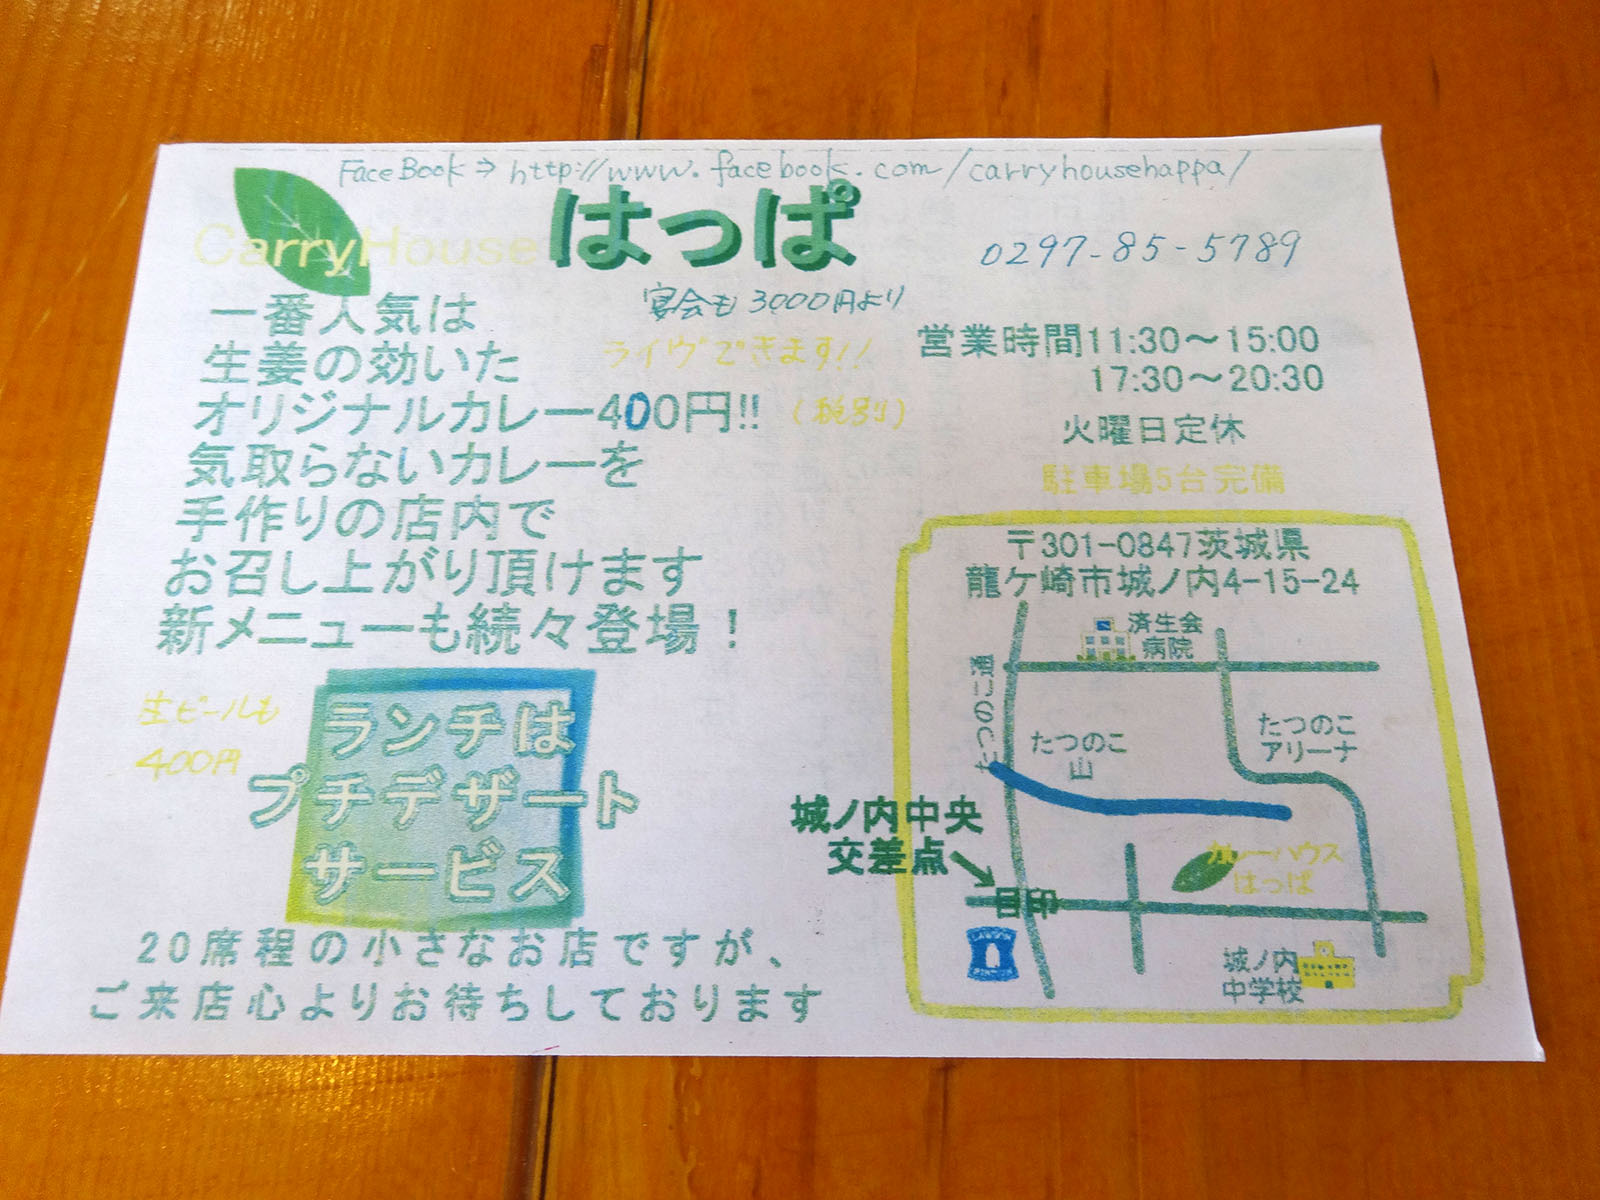 FaceBook⇒http://www.facebook.com/carryhousehappa/
CarryHouse はっぱ
0297-85-5789
宴会も3000円より
ライヴできます!!
一番人気は
生姜の効いた
オリジナルカレー400円!!（税別）
気取らないカレーを
手作りの店内で
お召し上がり頂けます
新メニューも続々登場！
生ビールも
400円
ランチは
プチデザート
サービス
20席程の小さなお店ですが、
ご来店心よりお待ちしております
営業時間11:30～15:00
17:30～20:30
火曜日定休
駐車場5台完備
〒301-0847茨城県
龍ケ崎市城ノ内4-15-24
済生会
病院
たつのこ通
たつのこ
山
たつのこ
アリーナ
城ノ内中央
交差点
カレーハウス
はっぱ
LAWSON
城ノ内
中学校